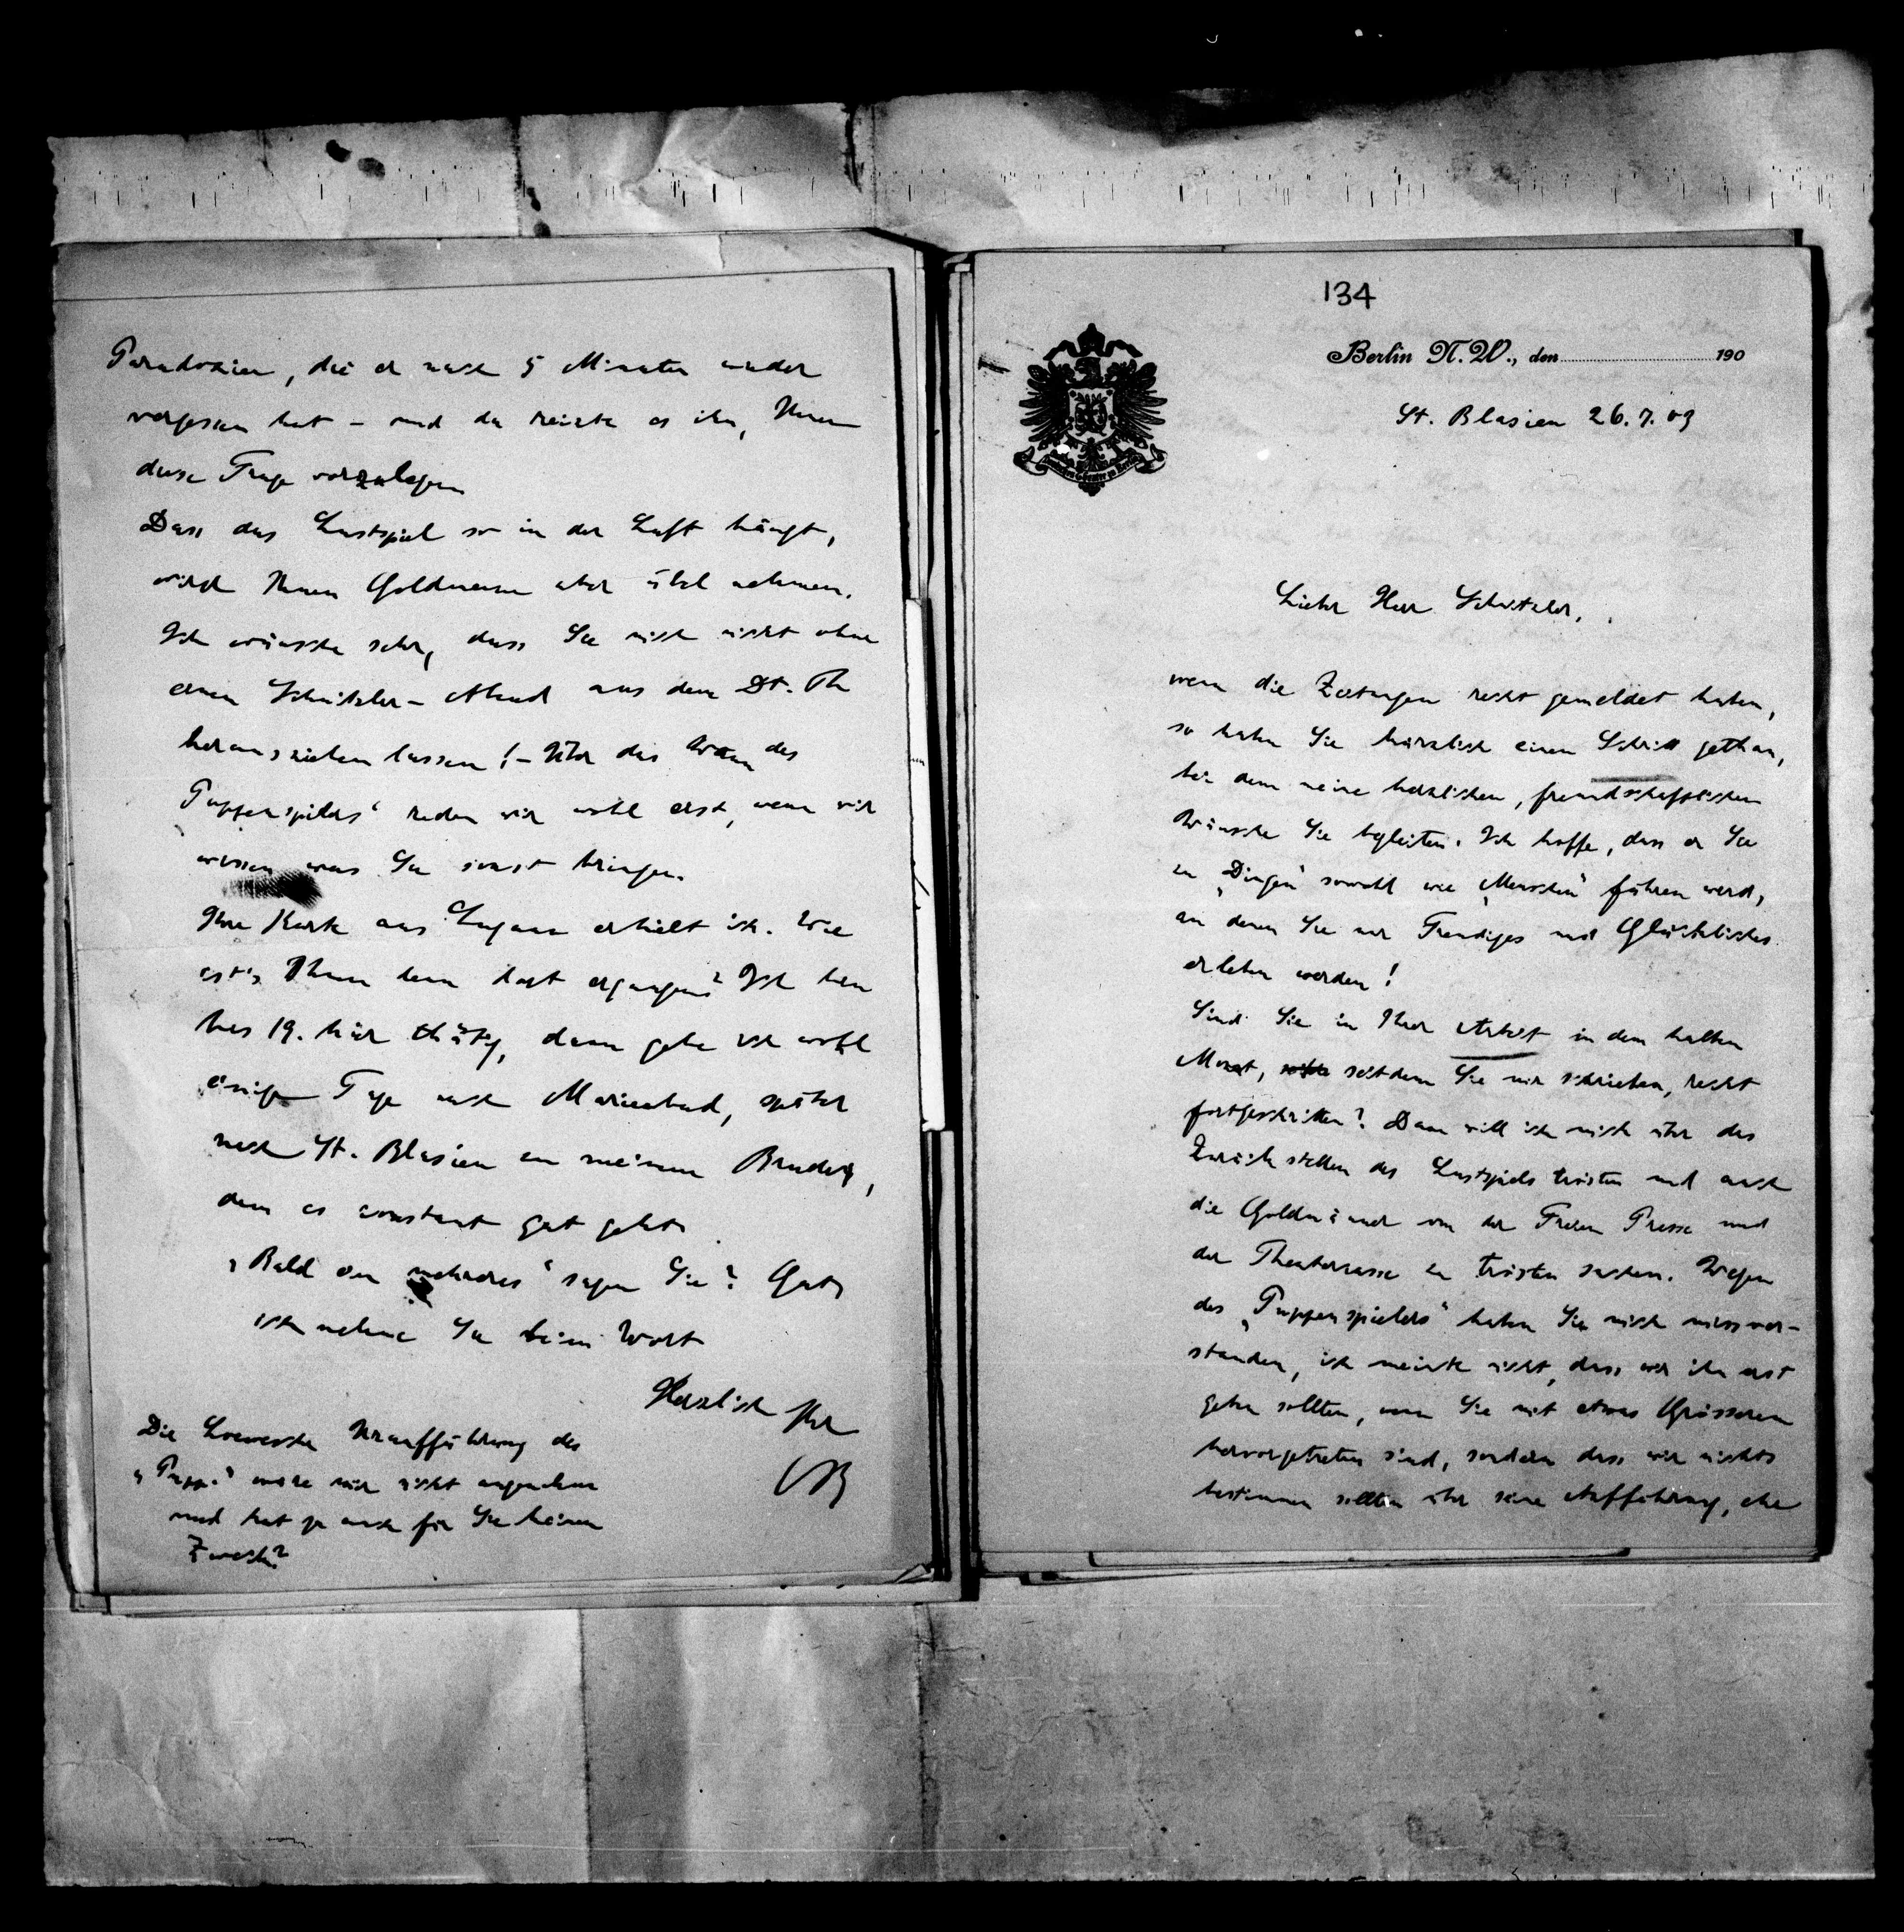 Paradoxien, die er nach 5 Minuten wieder
vergessen hat – und da reizte es ihn, Ihnen
diese Frage vorzulegen
Dass das Lustspiel so in der Luft hängt,
wird Ihnen Goldmann aber übel nehmen.
Ich wünsche sehr, dass Sie mich nicht ohne
einen Schnitzler-Abend aus dem Dt. Th
herausziehen lassen! – Über das Wann des
Puppenspielers“ reden wir wohl erst, wenn wir
wissen was Sie sonst bringen.
Ihre Karte aus Lugano erhielt ich. Wie
ist's Ihnen denn dort ergangen? Ich bin
bis 19. hier thätig, dann gehe ich wohl
einige Tage nach Marienbad, später
nach St. Blasien zu meinem Bruder,
dem es constant gut geht.
„Bald von mehreres“ sagen Sie? Gut,
ich nehme Sie beim Wort
Herzlich Ihr
OB
Die Loewesche Uraufführung des
„Pupp.“ wäre mir nicht angenehm
und hat ja auch für Sie keinen
Zweck?
134
Berlin N. W., den 190
St. Blasien 26. 7. 03
Lieber Herr Schnitzler,
wenn die Zeitungen recht gemeldet haben,
so haben Sie kürzlich einen Schritt gethan,
bei dem meine herzlichen, freundschaftlichen
Wünsche Sie begleiten. Ich hoffe, dass er Sie
zu „Dingen“ sowohl wie „Menschen“ führen wird,
an denen Sie nur Freudiges und Glückliches
erleben werden!
Sind Sie in Ihrer Arbeit in dem halben
Monat, seitdem Sie mir schrieben, recht
fortgeschritten? Dann will ich mich über das
Zurückstellen des Lustspiels trösten und auch
die Goldmänner von der Freien Presse und
der Theaterkasse zu trösten suchen. Wegen
des „Puppenspielers“ haben Sie mich missver-
standen, ich meinte nicht, dass wir ihn erst
geben sollten, wenn Sie mit etwas Grösserem
hervorgetreten sind, sondern dass wir nichts
bestimmen sollten über seine Aufführung, ehe